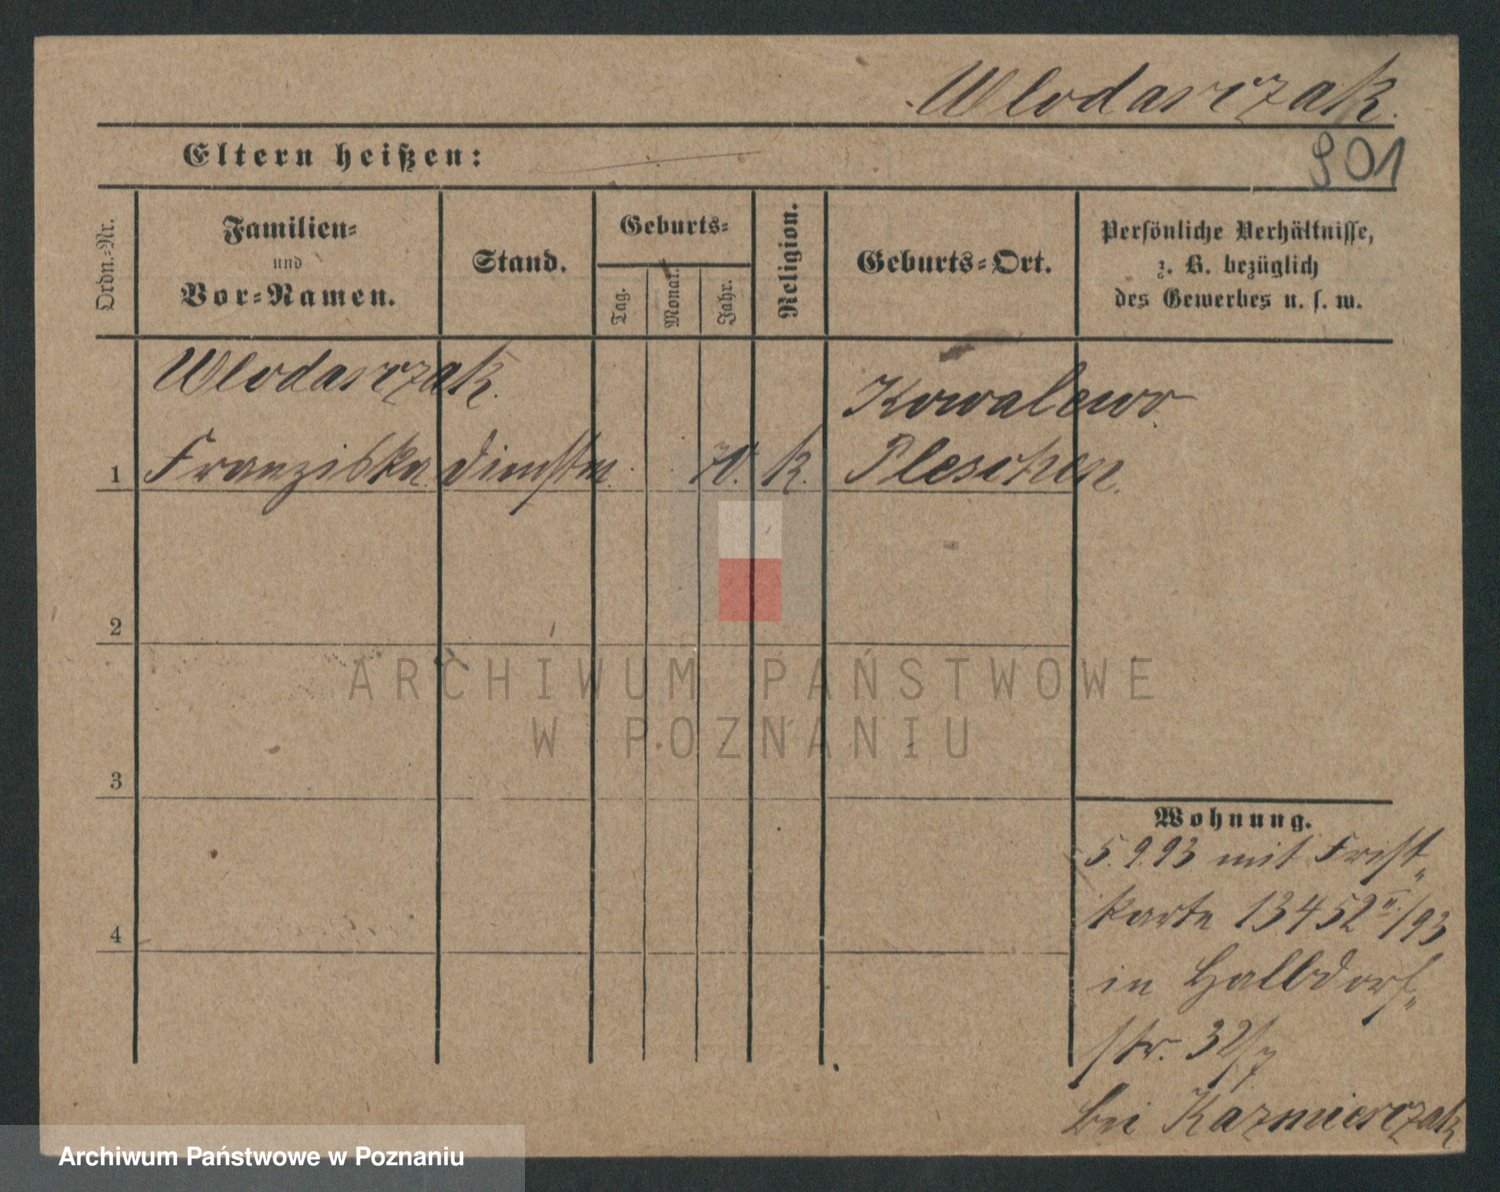 Wlodarczak.
Eltern heißen:
901
Ordn.-Nr.
Familien-
und
Vor-Namen.
Stand.
Geburts-
Tag.
Monat.
Jahr.
Religion.
Geburts-Ort.
Persönliche Verhältnisse,
z. B. bezüglich
des Gewerbes u. s. w.
Wlodarczak.
Kowalewo
1 Franziska 70. k. Pleschen.
2
ARCHIWUM PAŃSTWOWE
W POZNANIU
3
4
Wohnung.
5.9.93 mit Frist-
karte 13452 II/93
in Halbdorf-
str. 32/7
bei Kazmierczak
Archiwum Państwowe w Poznaniu